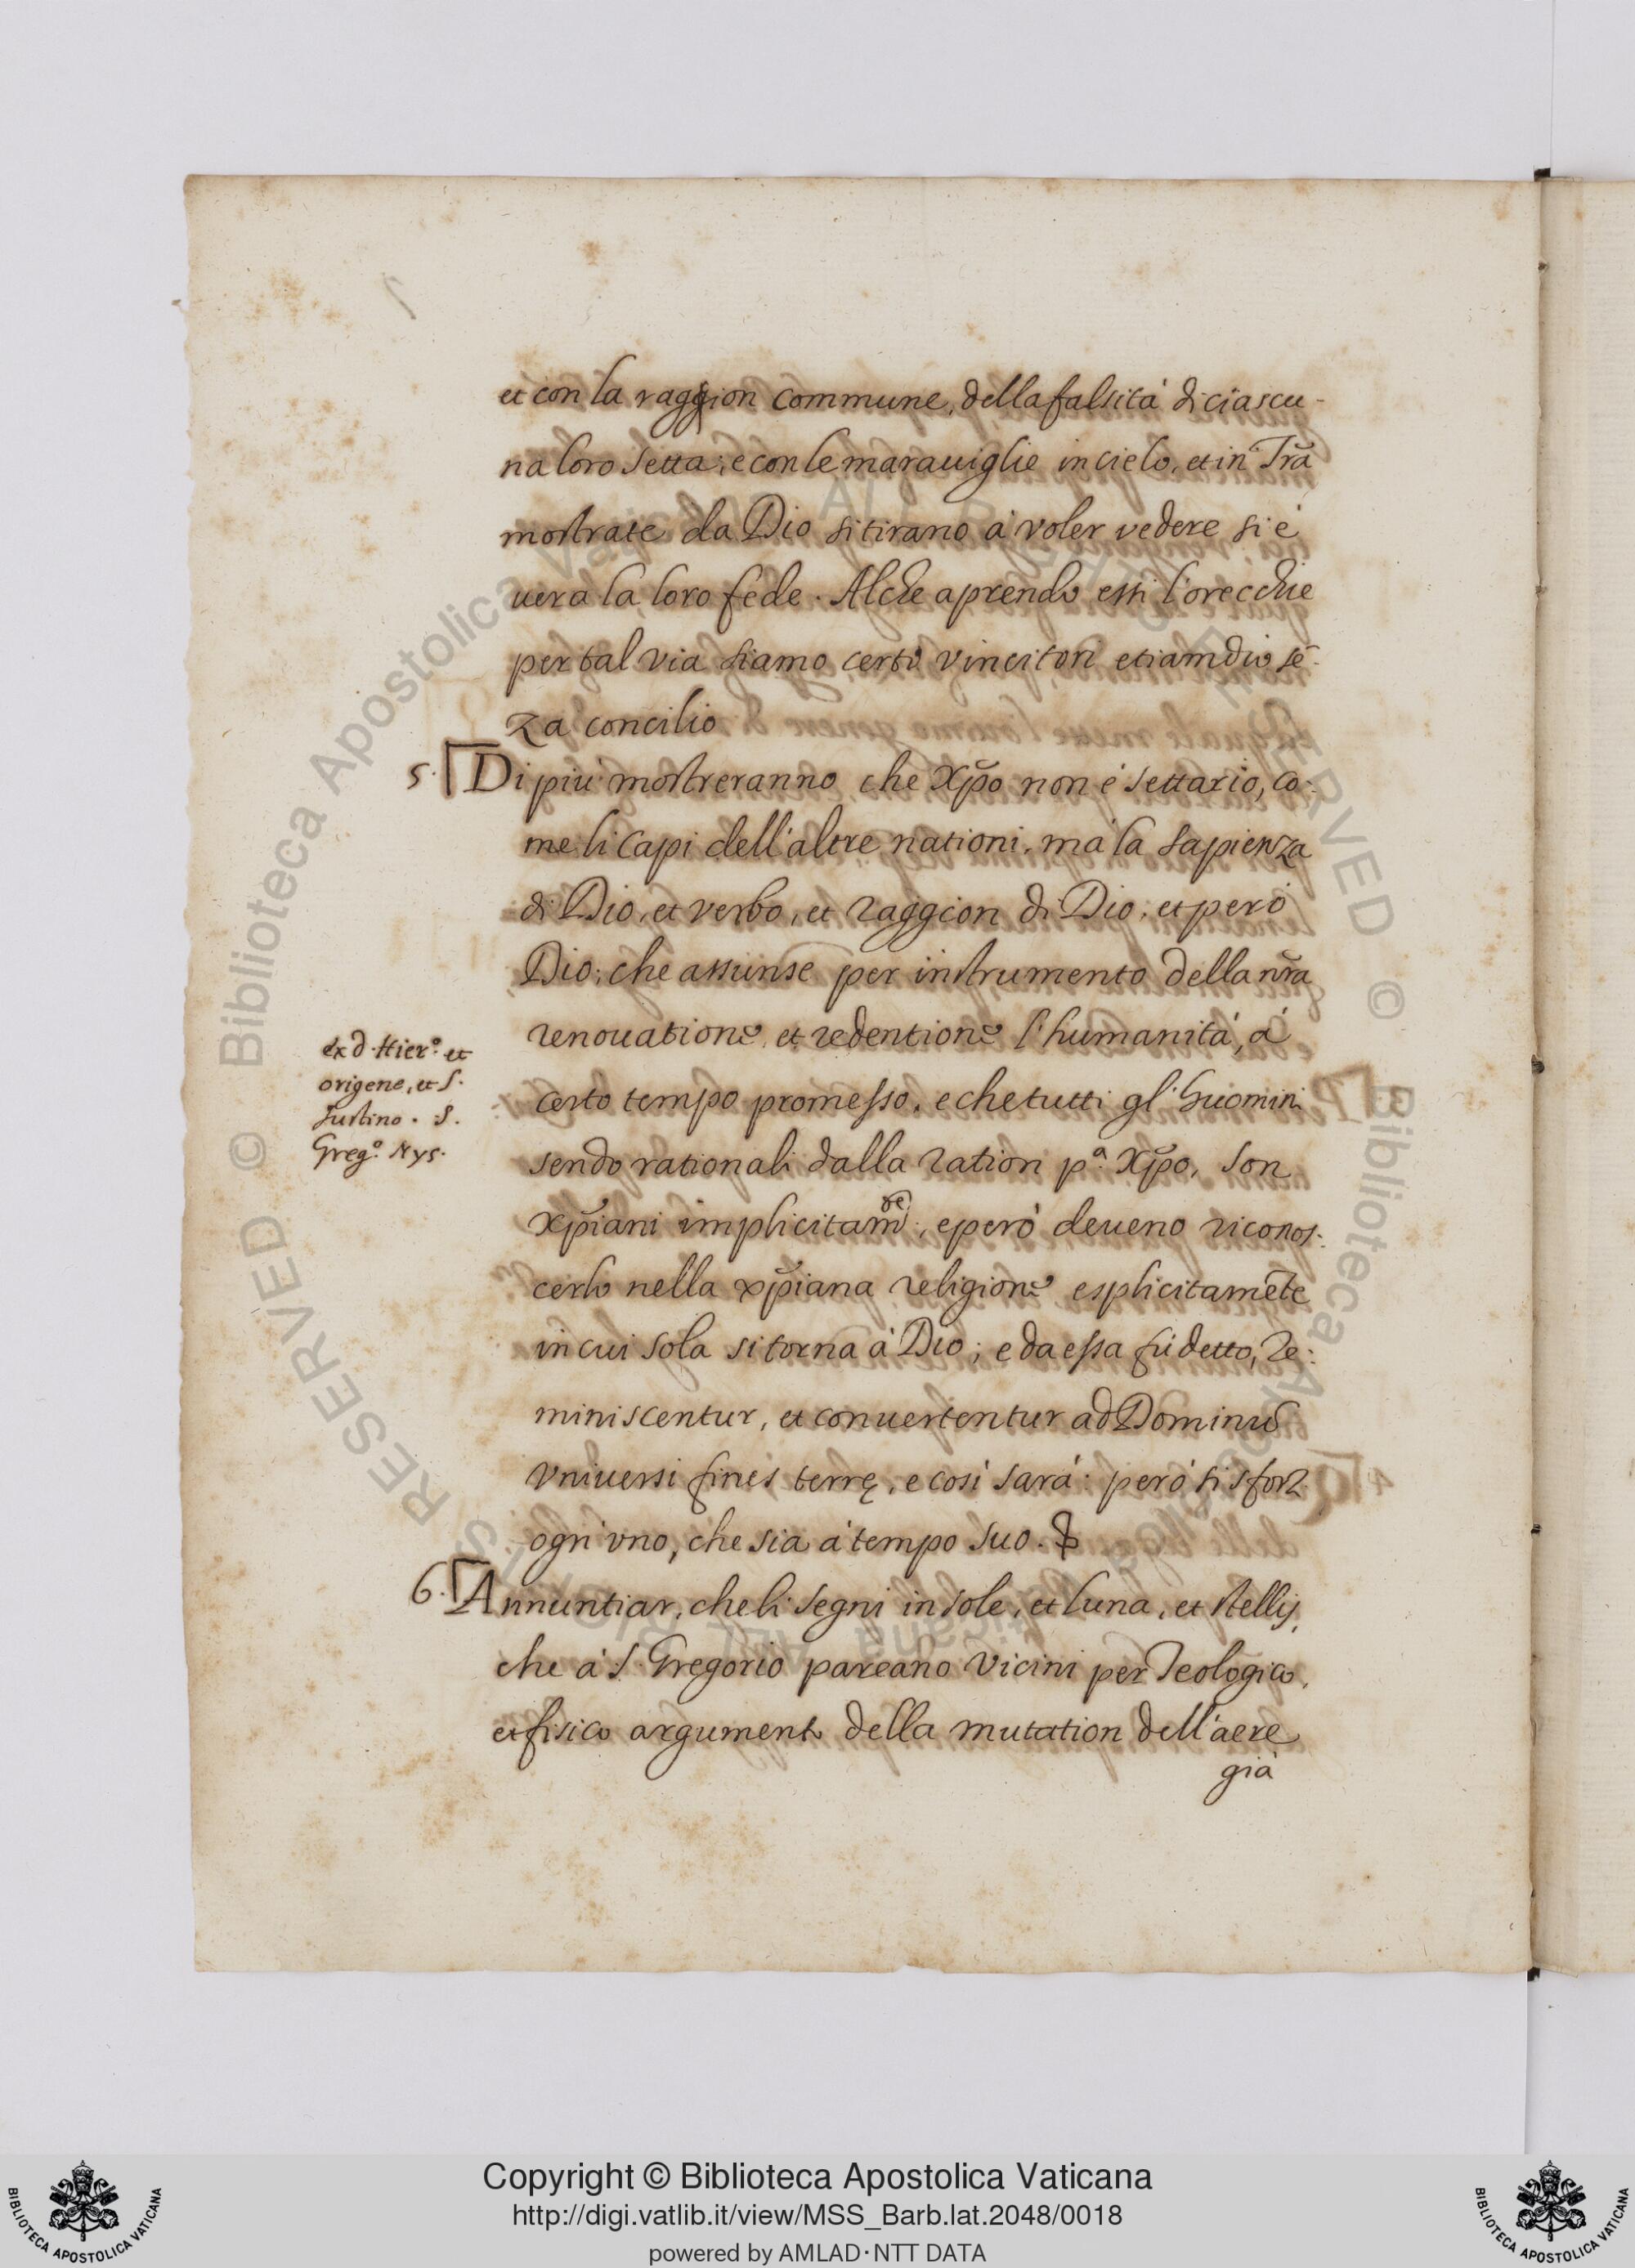 et con la raggion commune, della falsità di ciascu-
na loro setta; e con le marauiglie in cielo, et in Tr̃a
mostrate da Dio si tirano à voler vedere si è
uera la loro fede. Alche aprendo essi l'orecchie
per tal via siamo certi vincitori etiamdio sẽ-
za concilio
5. Di più mostreranno che Xp̃o non è settario, co:
me li Capi dell'altre nationi, mà la sapienza
di Dio, et verbo, et raggion di Dio, et però
Dio; che assunse per instrumento della nr̃a
renouatione et redentione l'humanità, à
ex d. Hier.º et
origene, et S.
Justino. S.
Greg.º Nys.
certo tempo promesso, e che tutti gl'huomini
sendo rationali dalla ration p.ª Xp̃o, son
xp̃iani implicitam.te, e però deueno riconos:
cerlo nella xp̃iana religione esplicitamẽte
in cui sola si torna à Dio; e da essa fù detto, Re:
miniscentur, et conuertentur ad Dominũ
vniuersi fines terrę, e così sarà: però si sforz
ogn'vno, che sia à tempo suo.
6. Annuntiar, che li segni in sole, et luna, et stellis,
che à S. Gregorio pareano vicini per Teologico,
et fisico argumento della mutation dell'aere
già
Copyright © Biblioteca Apostolica Vaticana
http://digi.vatlib.it/view/MSS_Barb.lat.2048/0018
powered by AMLAD·NTT DATA
BIBLIOTECA APOSTOLICA VATICANA
BIBLIOTECA APOSTOLICA VATICANA